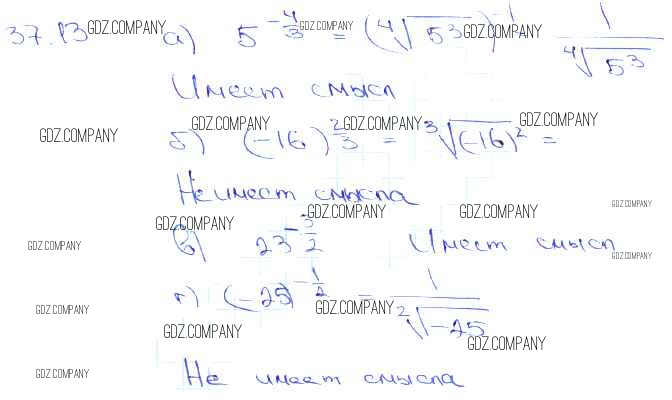 37.13 GDZ.COMPANY а) 5^{-4/3} GDZ.COMPANY = (⁴√5³)^{-1} GDZ.COMPANY 1/⁴√5³
Имеет смысл
GDZ.COMPANY GDZ.COMPANY GDZ.COMPANY GDZ.COMPANY
б) (-16)^{2/3} = ³√(-16)² =
Не имеет смысла
GDZ.COMPANY GDZ.COMPANY GDZ.COMPANY GDZ.COMPANY
GDZ.COMPANY в) 23^{-3/2} Имеет смысл GDZ.COMPANY
г) (-25)^{-1/2} = 1/²√-25
GDZ.COMPANY GDZ.COMPANY GDZ.COMPANY GDZ.COMPANY
GDZ.COMPANY Не имеет смысла